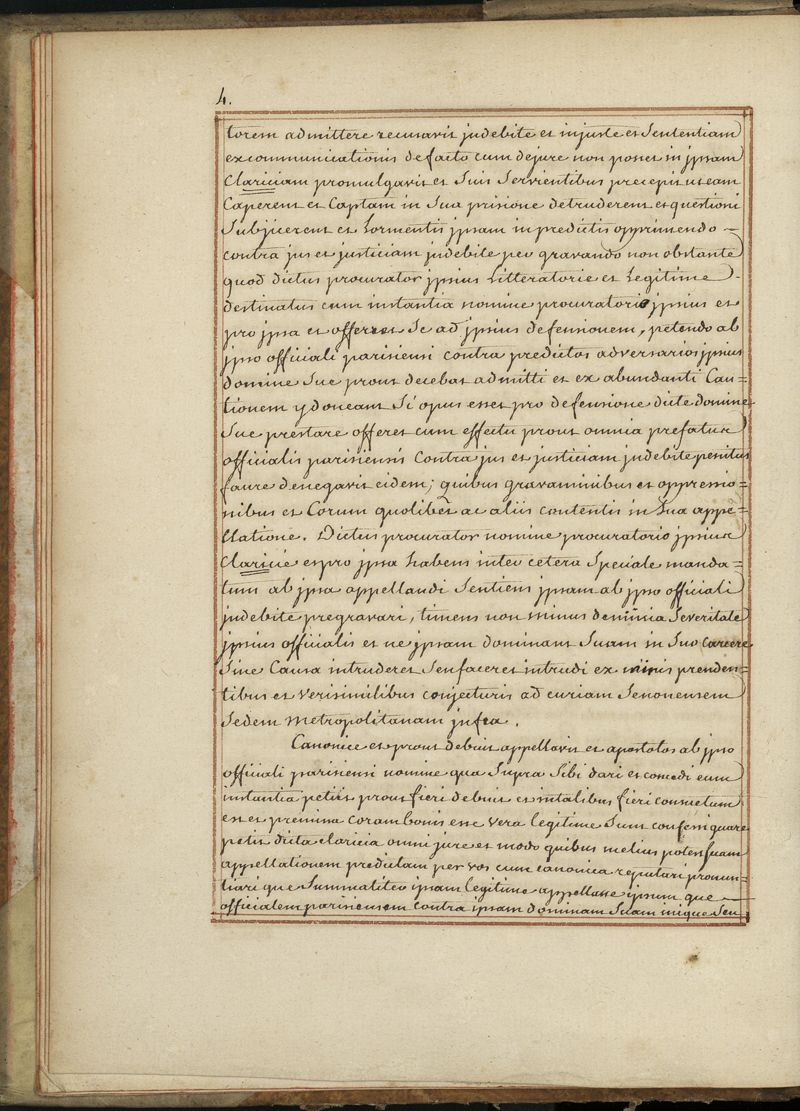 4.
torem admittere recusavit judebite et injuste et Sententiam
excommunicationis defacto cum dejure non posset in jpsam
Clariciam promulgavit et Suis Servientibus precepit ut eam
Caperent et Captam in Sua prisione detruderent et questioni
Subjicerent et tormentis jpsam in predictis opprimendo
contra jus et justiciam judebite per gravando non obstante
quod dictus procurator jpsius Litteratorie et Legitime
destinatus cum instantia nomine procuratorio jpsius et
pro jpsa et offerret Se ad jpsius defensionem, petendo ab
jpso officiali parisiensi contra predictos adversarios jpsius
domine Sue prout decebat admitti et ex abundanti Cau=
tionem ydoneam Si opus esset pro defensione dicte domine
Sue prestare offeret cum effectu prout omnia prefatus
officialis parisiensis Contra jus et justiciam judebite penitus
faure denegavit eidem; quibus gravaminibus et oppressio=
nibus et Eorum quolibet ac aliis contentis in Sua appe=
llatione. Dictus procurator nomine procuratorio jpsius
Claricie et pro jpsa habens inter cetera Speciale manda=
tum ab jpsa appellandi Sentiens jpsam ab jpso officiali
judebite pregravari, timens non minus de nimia Severitate
jpsius officialis et ne jpsam dominam Suam in Suo Carcere
Sine Causa intruderet Seu faceret intrudi ex minis prenden=
tibus et verisimilibus conjecturis ad curiam Senonensem
Sedem metropolitanam jnfra.
Canonice et prout debuit appellavit et apostolos ab jpso
officiali parisiensi nomine qua Supra Sibi dari et concedi cum
instantia petiit prout fieri debuit et in talibus fieri consuetum
est et premissa coram bonis esse vera legitime Sunt confessi quare
petit dicta claricia omni jure et modo quibus melius potest Suam
appellationem predictam per vos cum canonica reputari pronun=
tiari que Summaliter ipsam legitime appellasse ipsum que
officialem parisiensem contra ipsam dominam Suam inique Seu